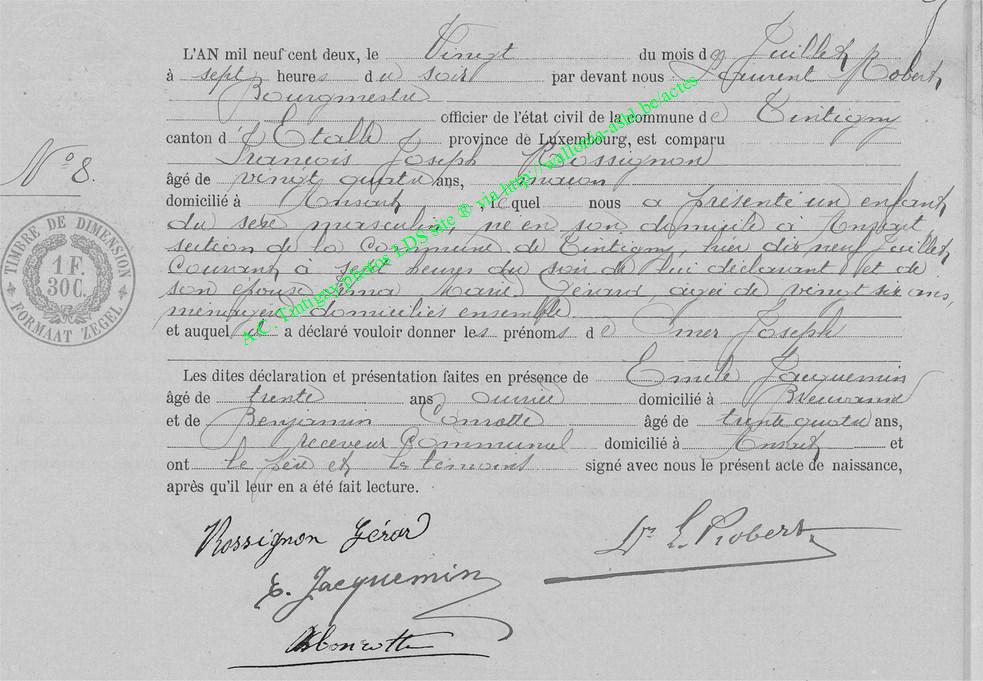 L'AN mil neuf cent deux, le Vingt du mois de Juillet
à sept heures du soir par devant nous Laurent Robert
Bourgmestre
officier de l'état civil de la commune de Tintigny
canton d'Etalle province de Luxembourg, est comparu
François Joseph Rossignon
N° 8.
âgé de vingt quatre ans, maçon
domicilié à Ansart, lequel nous a présenté un enfant
du sexe masculin né en son domicile à Ansart
section de la Commune de Tintigny, hier dix neuf Juillet
Courant à heures du soir de lui déclarant et de
son épouse Marie Gérard, agée de vingt six ans,
ménagère domiciliés ensemble
et auquel il a déclaré vouloir donner les prénoms de Omer Joseph
Les dites déclaration et présentation faites en présence de Emile Jacquemin
âgé de trente ans domicilié à
et de Benjamin Cornette âgé de trente quatre ans,
receveur Communal domicilié à Ansart et
ont le père et les témoins signé avec nous le présent acte de naissance,
après qu'il leur en a été fait lecture.
TIMBRE DE DIMENSION
1 F.
30 C.
FORMAAT ZEGEL
A.C. Tintigny photos LDS site ® via http://wallonia-asbl.be/actes
Rossignon Gérard
Dr L. Robert
E. Jacquemin